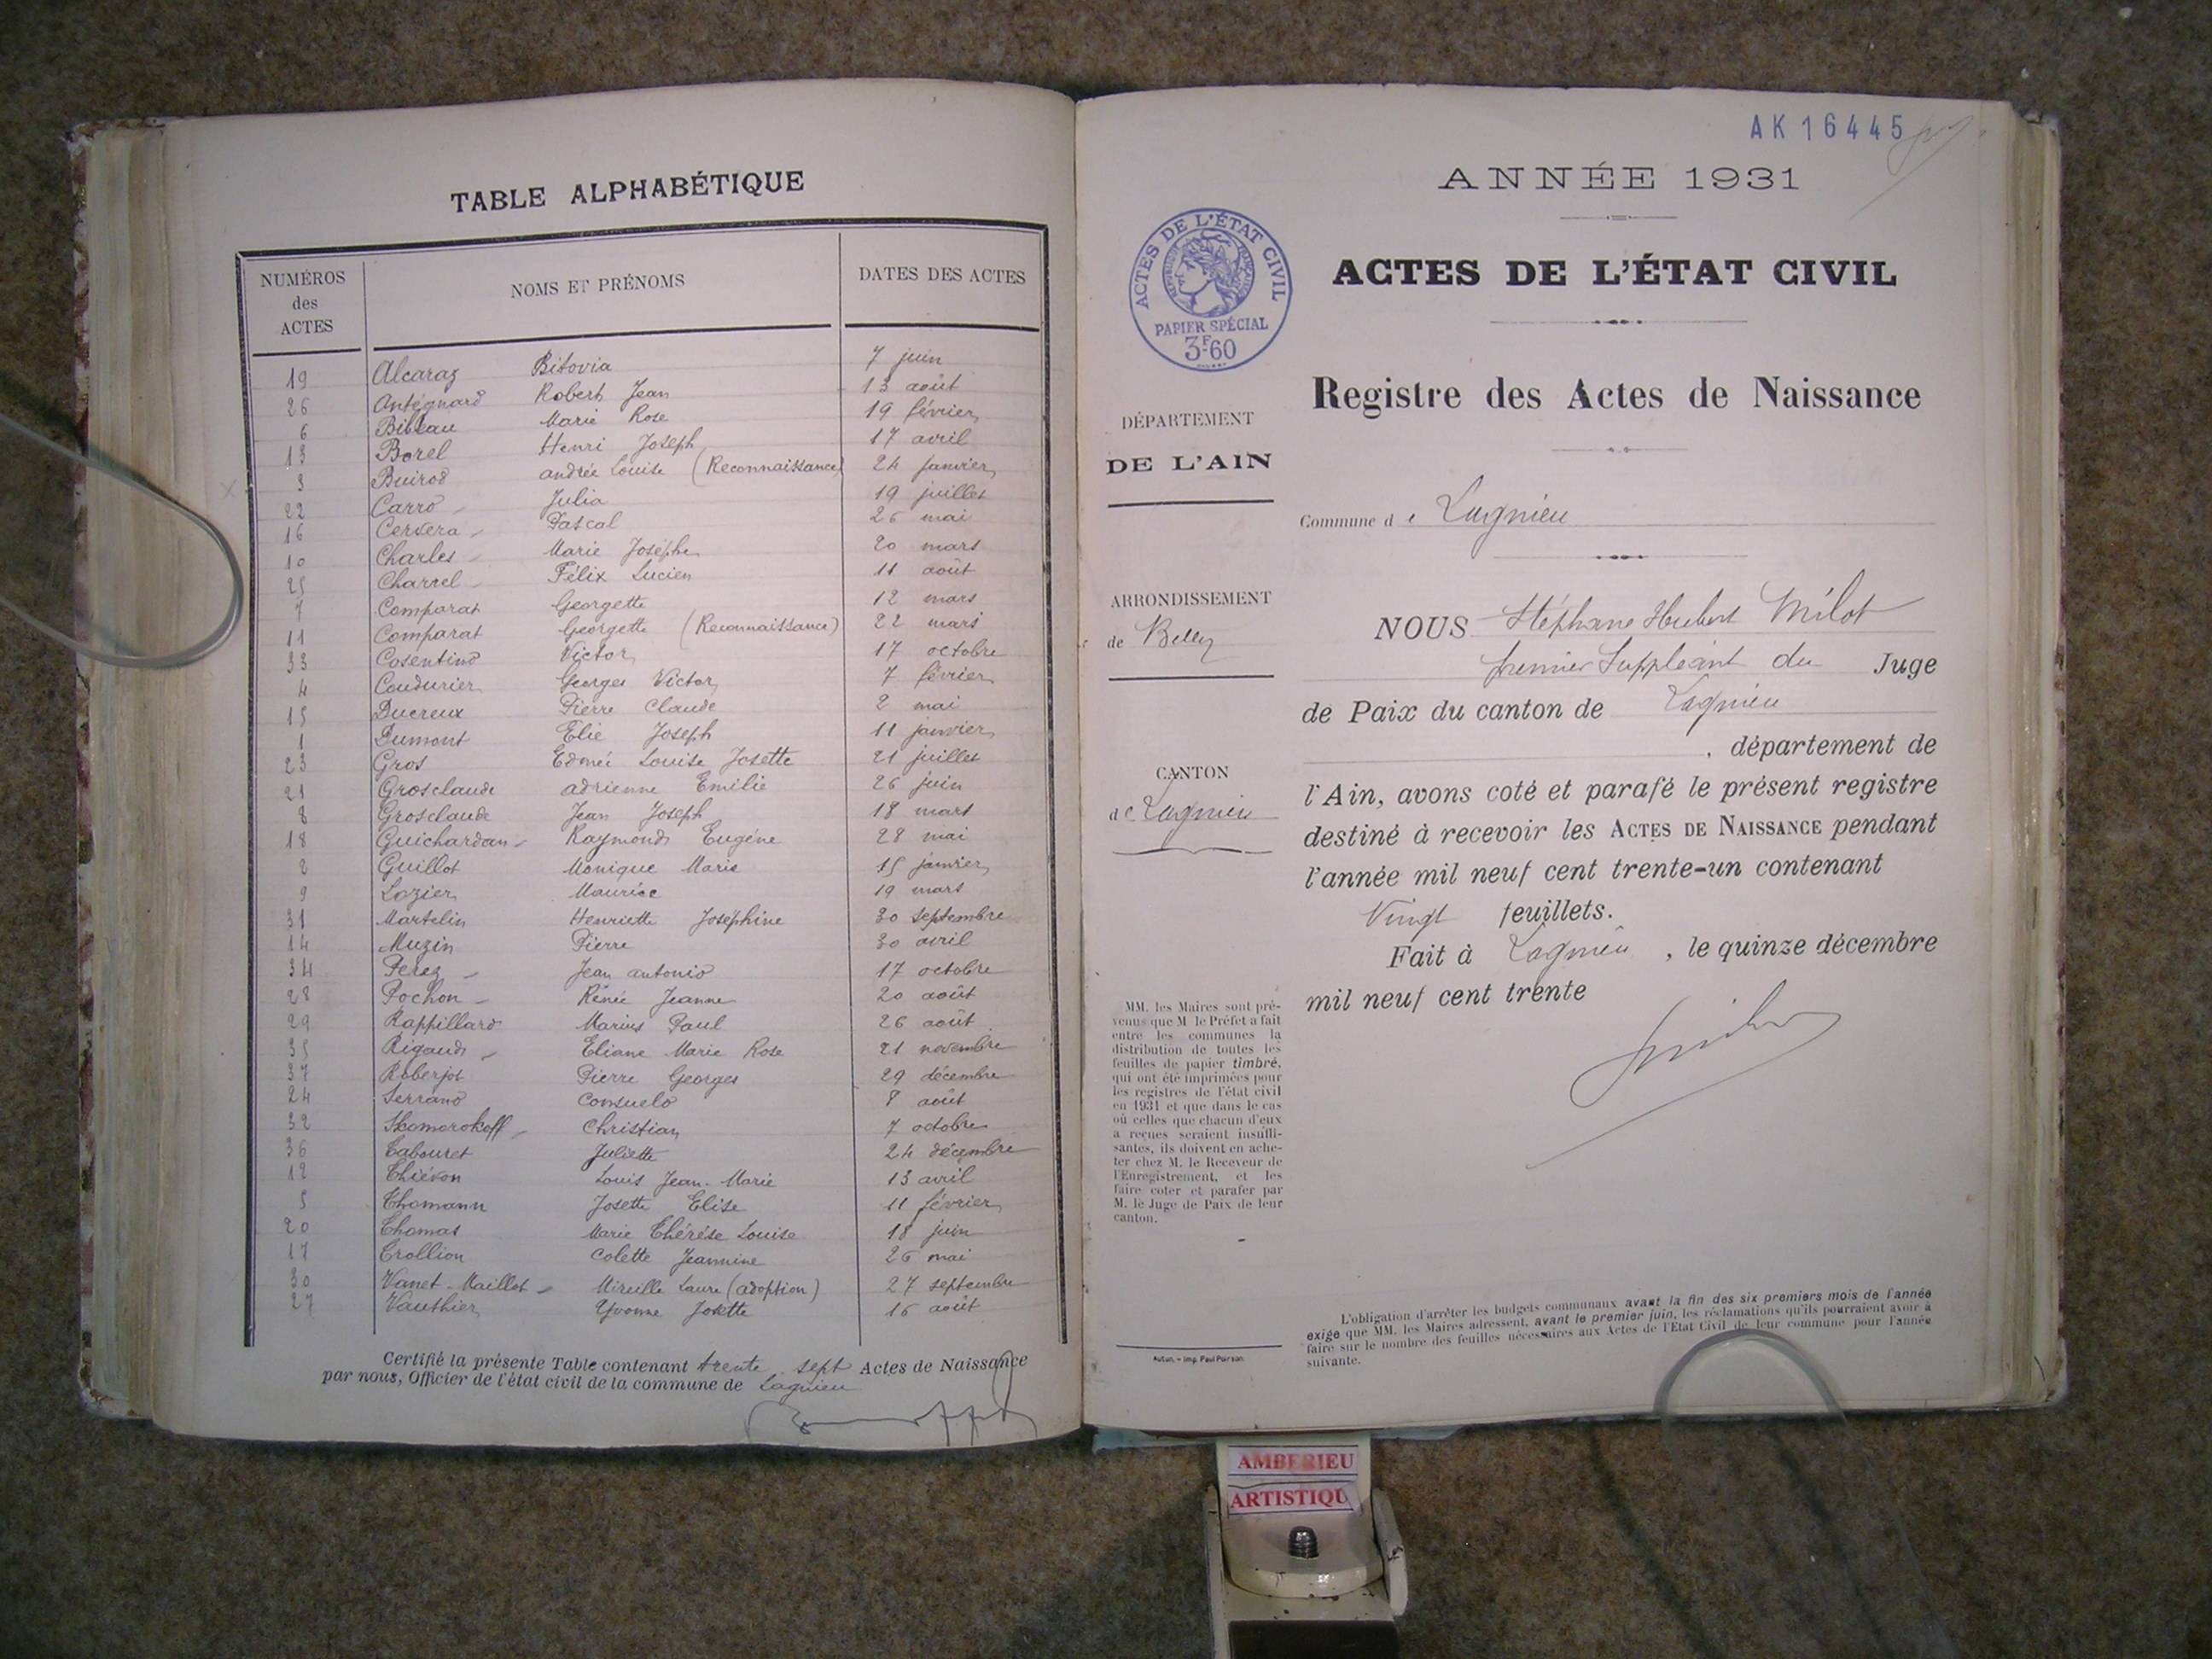 TABLE ALPHABÉTIQUE
NUMÉROS des ACTES
NOMS ET PRÉNOMS
DATES DES ACTES
19 Alcaraz Bitovia 7 juin
26 Antégnard Robert Jean 13 août
6 Bibeau Marie Rose 19 février
13 Borel Henri Joseph 17 avril
3 Buirod andrée Louise (Reconnaissance) 24 janvier
22 Carro Julia 19 juillet
16 Cervera Pascal 26 mai
10 Charles Marie Josèphe 20 mars
25 Charrel Félix Lucien 11 août
7 Comparat Georgette 12 mars
11 Comparat Georgette (Reconnaissance) 22 mars
33 Cosentino Victor 17 octobre
4 Coudurier Georges Victor 7 février
15 Ducreux Pierre Claude 2 mai
1 Dumont Elie Joseph 11 janvier
23 Gros Edmée Louise Josette 21 juillet
21 Grosclaude adrienne Emilie 26 juin
8 Grosclaude Jean Joseph 18 mars
18 Guichardan Raymond Eugène 28 mai
2 Guillot Monique Marie 15 janvier
9 Lozier Maurice 19 mars
31 Martelin Henriette Joséphine 30 septembre
14 Muzin Pierre 30 avril
34 Perez Jean antonio 17 octobre
28 Pochon Rénée Jeanne 20 août
29 Rappillard Marius Paul 26 août
35 Rigaud Eliane Marie Rose 21 novembre
37 Roberjot Pierre Georges 29 décembre
24 Serrano Consuelo 8 août
32 Skomorokoff Christian 7 octobre
36 Tabouret Juliette 24 décembre
12 Thiévon Louis Jean-Marie 13 avril
5 Thomann Josette Elise 11 février
20 Thomas Marie Thérèse Louise 18 juin
17 Trollion Colette Jeannine 26 mai
30 Vanet-Maillot Mireille Laure (adoption) 27 septembre
27 Vauthier Yvonne Josette 16 août
Certifié la présente Table contenant trente sept Actes de Naissance
par nous, Officier de l'état civil de la commune de Lagnieu
AK 16445
ANNÉE 1931
ACTES DE L'ÉTAT CIVIL
RÉPUBLIQUE FRANÇAISE
PAPIER SPÉCIAL
3F60
ACTES DE L'ÉTAT CIVIL
Registre des Actes de Naissance
DÉPARTEMENT
DE L'AIN
Commune de Lagnieu
ARRONDISSEMENT
de Belley
CANTON
de Lagnieu
NOUS Stéphane Hubert Milot
premier Suppléant du Juge
de Paix du canton de Lagnieu
, département de
l'Ain, avons coté et parafé le présent registre
destiné à recevoir les ACTES DE NAISSANCE pendant
l'année mil neuf cent trente-un contenant
Vingt feuillets.
Fait à Lagnieu, le quinze décembre
mil neuf cent trente
MM. les Maires sont pré-
venus que M le Préfet a fait
entre les communes la
distribution de toutes les
feuilles de papier timbré,
qui ont été imprimées pour
les registres de l'état civil
en 1931 et que dans le cas
où celles que chacun d'eux
a reçues seraient insuffi-
santes, ils doivent en ache-
ter chez M. le Receveur de
l'Enregistrement, et les
faire coter et parafer par
M. le Juge de Paix de leur
canton.
Autun. - Imp. Paul Poirson
L'obligation d'arrêter les budgets communaux avant la fin des six premiers mois de l'année
exige que MM. les Maires adressent, avant le premier juin, les réclamations qu'ils pourraient avoir à
faire sur le nombre des feuilles nécessaires aux Actes de l'Etat Civil de leur commune pour l'année
suivante.
AMBERIEU
ARTISTIQU